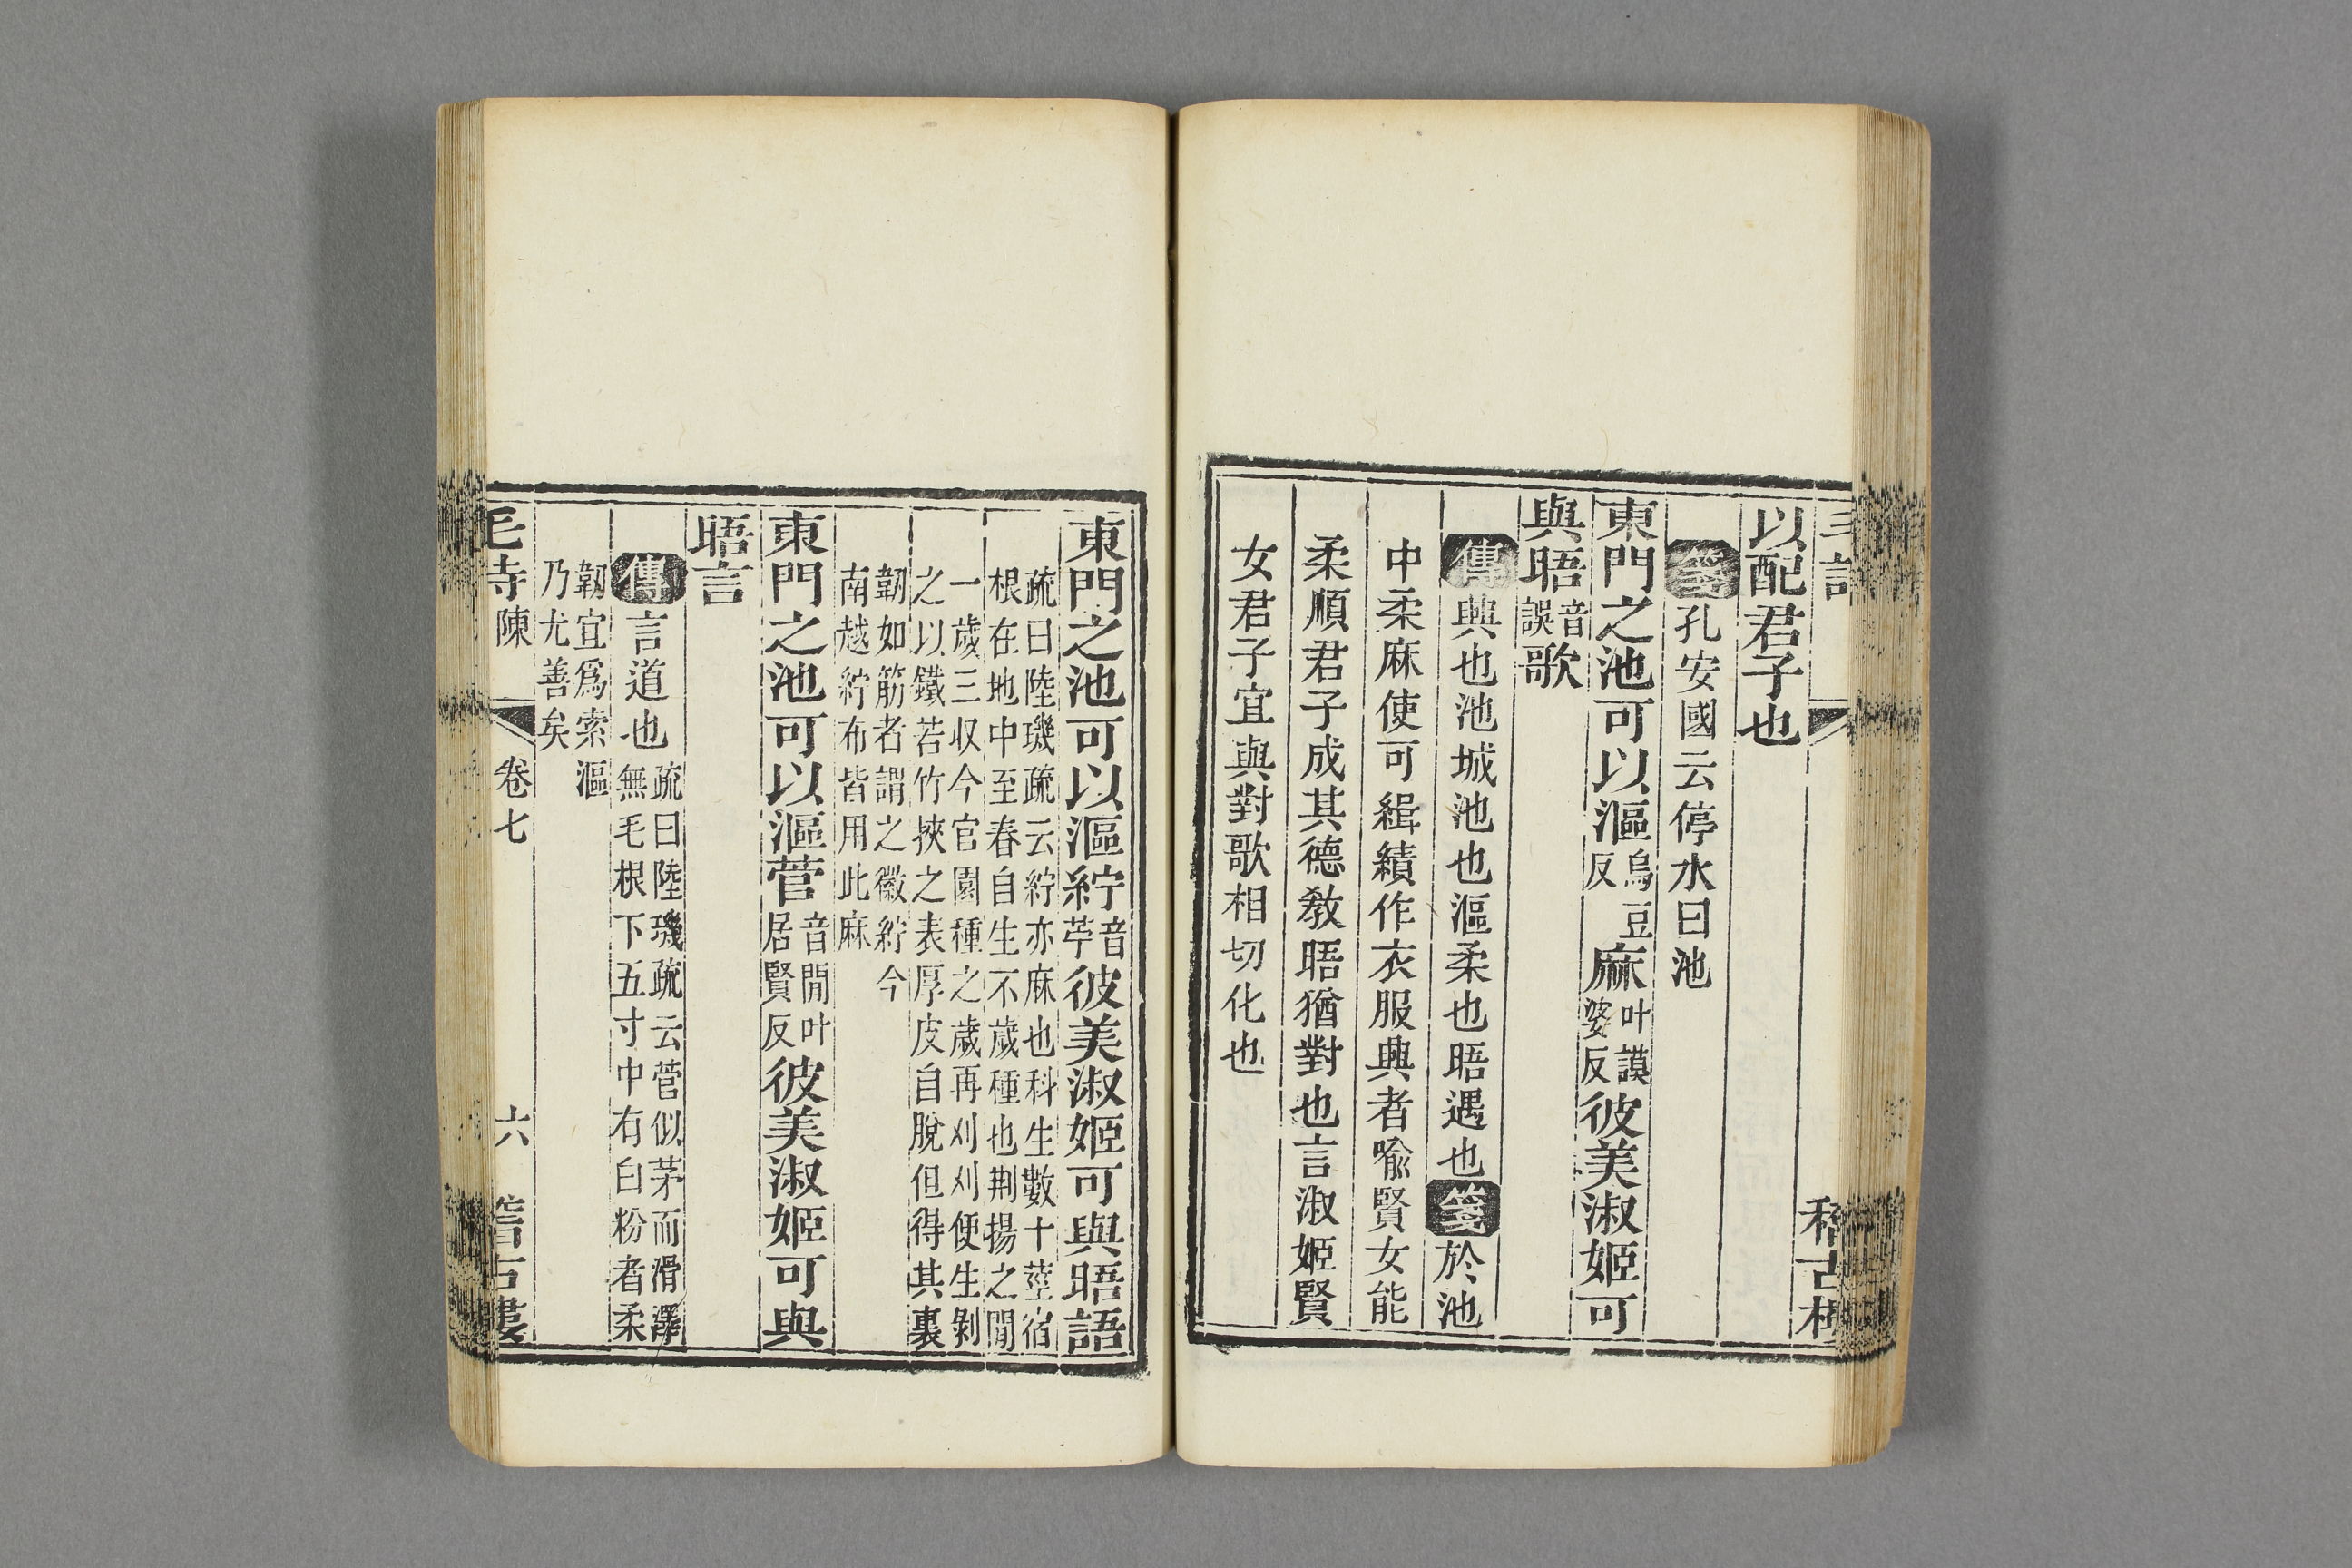 以配君子也
箋孔安國云停水曰池
東門之池可以漚烏豆反麻叶謨婆反彼美淑姬可
與晤音誤歌
傳興也池城池也漚柔也晤遇也箋於池
中柔麻使可緝績作衣服興者喻賢女能
柔順君子成其德敎晤猶對也言淑姬賢
女君子宜與對歌相切化也
東門之池可以漚紵音苧彼美淑姬可與晤語
疏曰陸璣疏云紵亦麻也科生數十莖宿
根在地中至春自生不歲種也荆揚之閒
一歲三収今官園種之歲再刈刈便生剝
之以鐵若竹挾之表厚皮自脫但得其裏
韌如筋者謂之徽紵今
南越紵布皆用此麻
東門之池可以漚菅音閒叶居賢反彼美淑姬可與
晤言
傳言道也疏曰陸璣疏云菅似茅而滑澤
無毛根下五寸中有白粉者柔
韌宜爲索漚
乃尤善矣
陳 卷七 六